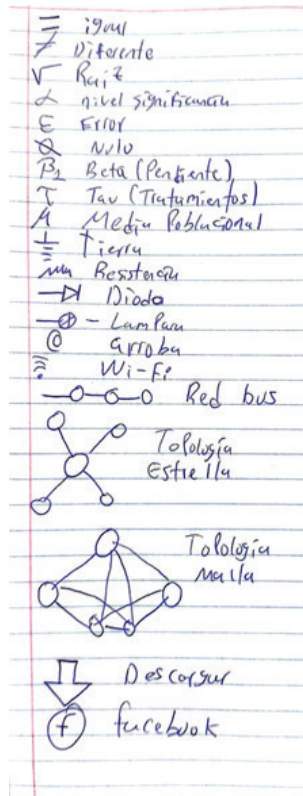 = igual
≠ Diferente
√ Raiz
α nivel significancia
ε Error
Nulo
β₁ Beta (Pendiente)
τ Tau (Tratamientos)
μ Media Poblacional
Tierra
Resstencia
Diodo
- Lampara
@ arroba
Wi-Fi
Red bus
Topología
Estrella
Topología
Malla
Descargar
f facebook